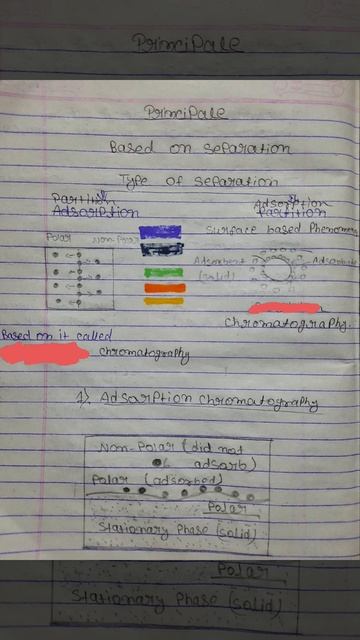 PrinciPale
PrinciPale
Based on separation
Type of separation
Partition
Adsorption
Adsorption
Partition
Surface based Phenomena
Polar
Adsorbent
(solid)
Adsorbate
chromatography.
Based on it called
chromatography
1). Adsorption chromatography
Non-Polar (did not
adsorb)
Polar (adsorbed)
Polar
Stationary Phase (solid)
Polar
Stationary Phase (solid)